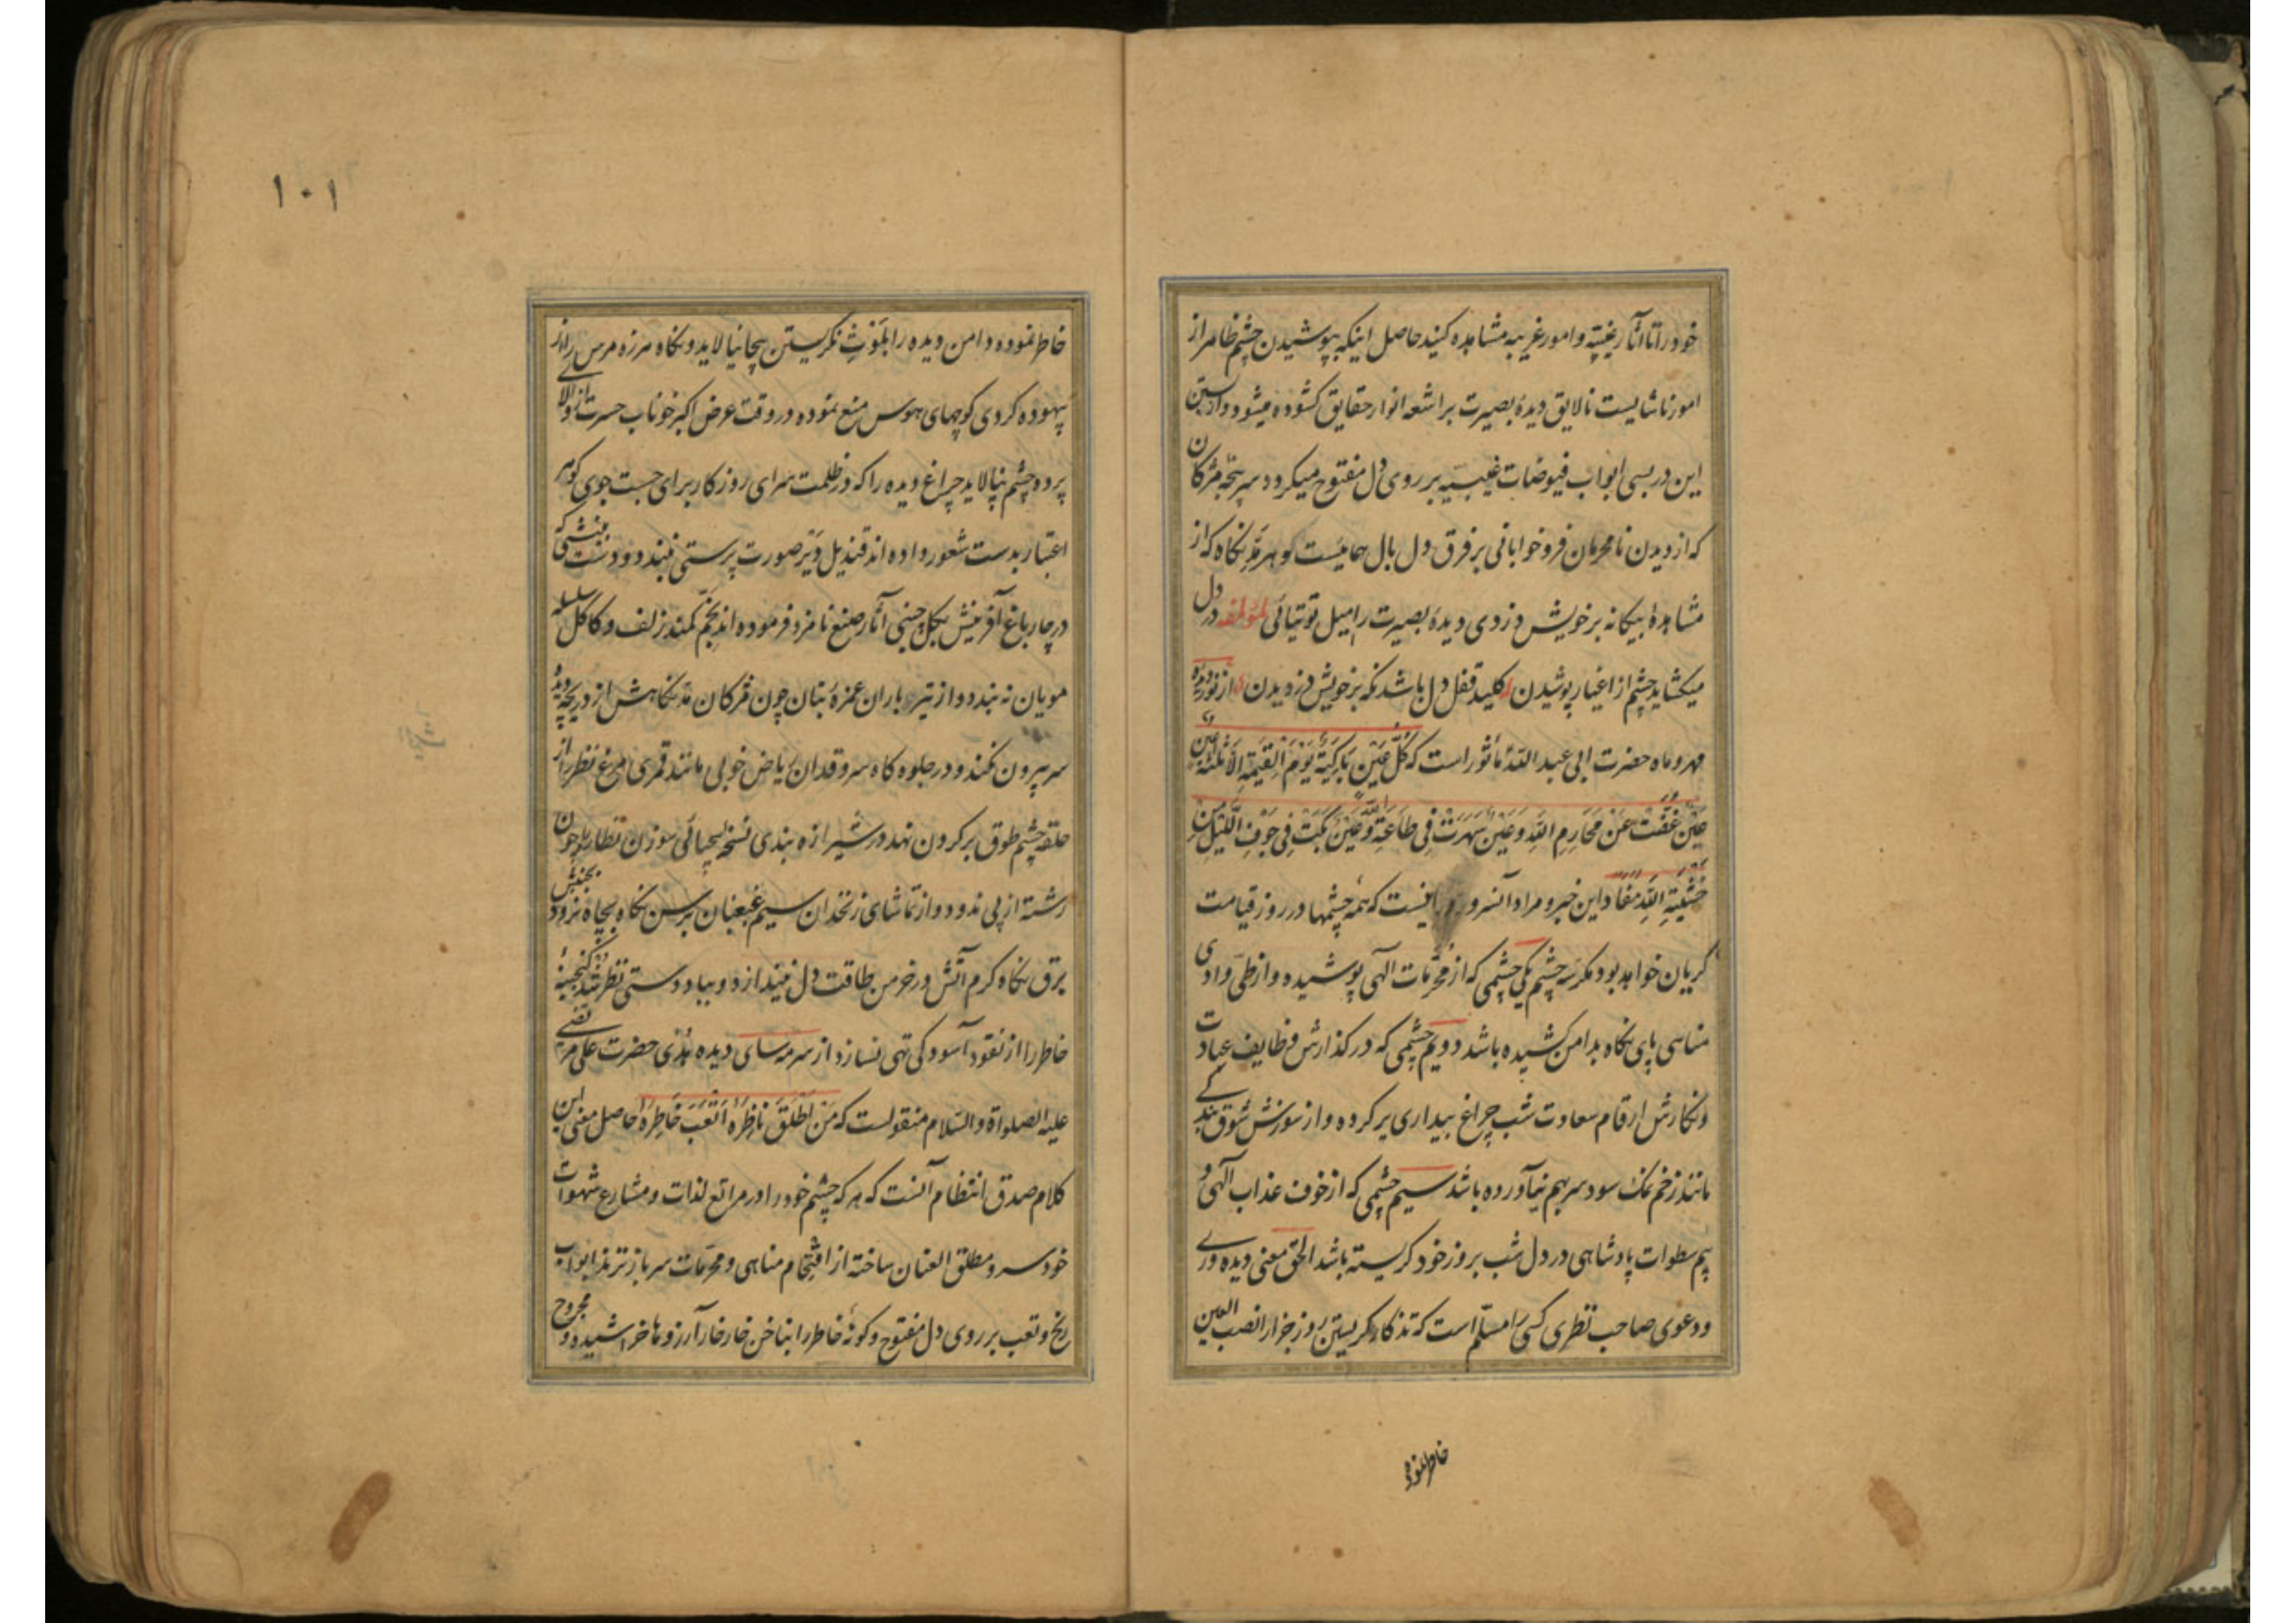 خود را تا آثار غیبیّه و امور غریبه مشاهده کنید حاصل اینکه بپوشیدن چشم ظاهر از
امور ناشایست نالایق دیدهٔ بصیرت بر اشعه انوار حقایق کشوده میشود و از بستن
این در بسی ابواب فیوضات غیبیّه بر روی دل مفتوح میکردد سرپنجه مژکان
که از دیدن نامحرمان فروخوابانی بر فرق دل بال هماییست و هر مدّ نکاه که از
مشاهدهٔ بیکانه بر خویش دزدی دیدهٔ بصیرت را میل توتیائی لمؤلفه در دل
میکشاید چشم از اغیار پوشیدن کلید قفل دل باشد نکه بر خویش دزدیدن از نور دیده
مهر و ماه حضرت ابی عبد اللّه مأثور است که کُلُّ عَیْنٍ بَاکِیَةٌ یَوْمَ الْقِیٰمَةِ اِلَّا ثَلٰثَةٌ عَیْنٌ
عَیْنٌ غَضَّتْ عَنْ مَحَارِمِ اللّهِ وَ عَیْنٌ سَهِرَتْ فِی طَاعَةِ اللّهِ وَ عَیْنٌ بَکَتْ فِی جَوْفِ اللَّیْلِ مِنْ
خَشْیَةِ اللّهِ مفاد این خبر و مراد آنسرور اینست که همه چشمها در روز قیامت
کریان خواهد بود مکر سه چشم یکی چشمی که از محرّمات الهی پوشیده و از طیّ وادی
مناهی پای نکاه بدامن کشیده باشد دویم چشمی که در کذارش وظایف عبادت
و نکارش ارقام سعادت شب چراغ بیداری بر کرده و از سوزش شوق بندکے
مانند زخم نمک سود سر بهم نیآورده باشد سیم چشمی که از خوف عذاب الهی و
بیم سطوات پادشاهی در دل شب بروز خود کریسته باشد الحق معنی دیده ورے
و دعوی صاحب نظری کسی را مسلّم است که تذکار کریستن روز جزا را نصب العین
خاطر نموده
١٠١
خاطر نموده دامن دیده را بلَوْثِ نکریستن بیجا نیالاید و نکاه هرزه مرس را از
بیهوده کردی کوچهای هوس منع نموده در وقت عرض اکبر خوناب حسرت از پالای
پرده چشم نپالاید چراغ دیده را که در ظلمت سرای روزکار برای جست جوی کوهر
اعتبار بدست شعور داده اند قندیل دَیْر صورت پرستی نبندد و دست بینشی که
در چارباغ آفرینش بکل چینی آثار صنع نامزد فرموده اند بخم کمند زلف و کاکل سلسله
مویان نه بندد و از تیر باران غمزهٔ بتان چون مژکان مدّ نکاهش از دریچه دیده
سر بیرون نکند و در جلوه کاه سرو قدان ریاض خوبی مانند قمری مرغ نظر را از
حلقه چشم طوق بر کردن ننهد در شیرازه بندی نسخه بیحیائی سوزن نظاره را چون
رشته از پی ندود و از تماشای زنخدان سیم غبغبان برسن نکاه بچاه نرود بجنبش
برق نکاه کرم آتش در خرمن طاقت دل نیندازد و بباد دستی نظر تند کنجینهٔ
خاطر را از نقود آسودکی تهی نسازد از سرمه سای دیده بلندی حضرت علی مرتضی
علیه الصلواة و السّلام منقولست که مَنْ اَطْلَقَ نَاظِرَهُ اَتْعَبَ خَاطِرَهُ حاصل معنی این
کلام صدق انتظام آنست که هر که چشم خود را در مراتع لذات و مشارع شهوات
خودسر و مطلق العنان ساخته از اقتحام مناهی و محرّمات سر باز نزند ابواب
رنج و تعب بر روی دل مفتوح و کونهٔ خاطر را بناخن خارخار آرزوها خراشیده و مجروح